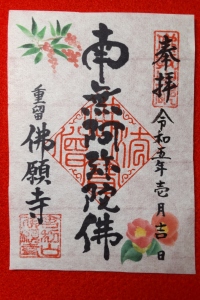 奉拝
令和五年壱月吉日
南無阿弥陀佛
重留
佛願寺